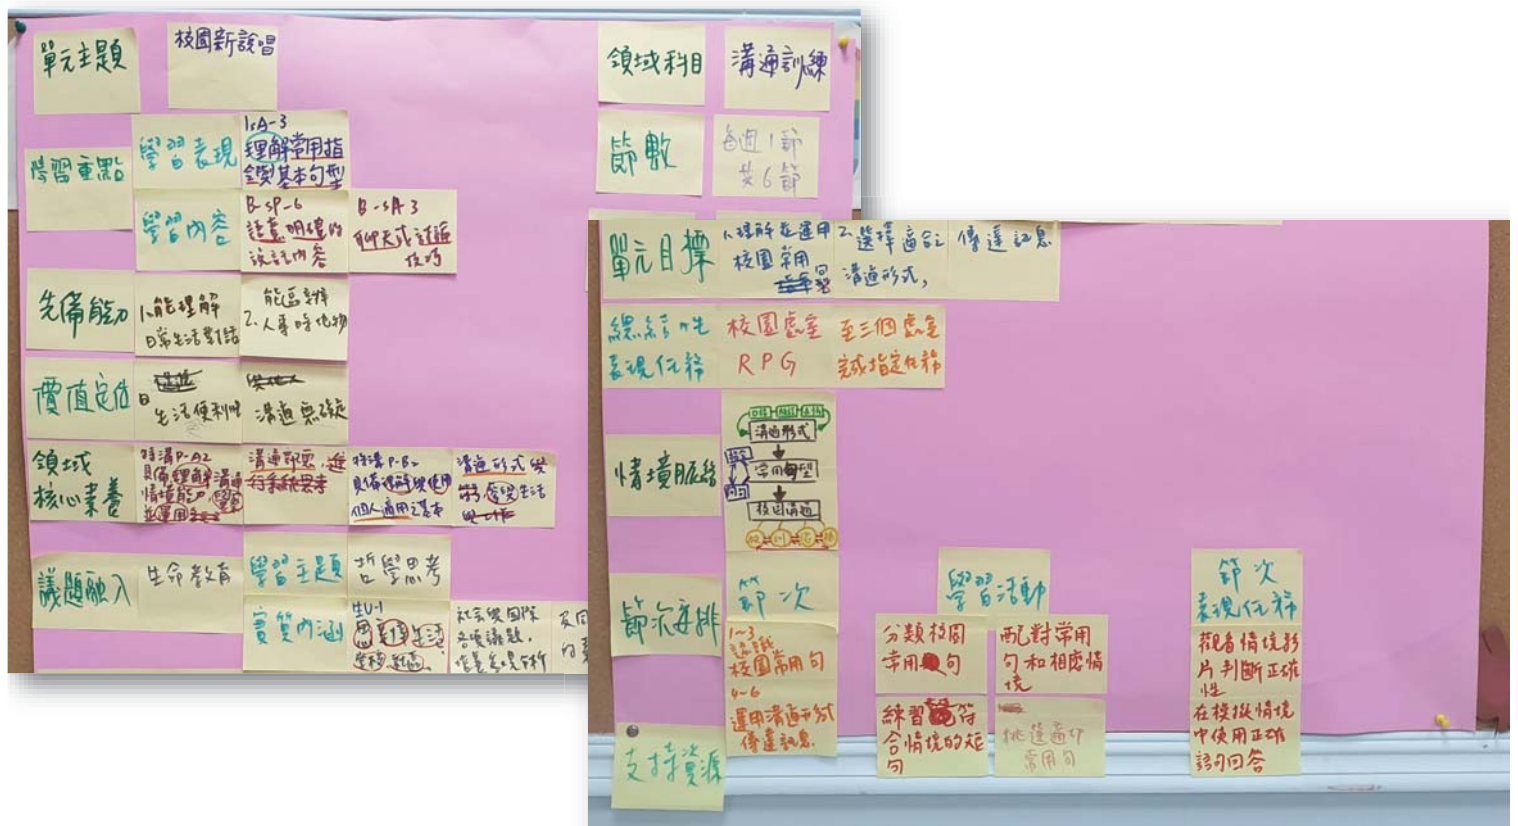 單元主題
校園新說唱
領域科目
溝通訓練
學習重點
學習表現
1sA-3
理解常用指
基本句型
節數
每週1節
共6節
學習內容
B-sP-6
語意明確的
談話內容
B-sA-3
聊天或討論
技巧
先備能力
1.能理解
日常生活對話
能區辨
2.人事時地物
價值定位
生活便利性
溝通無礙
領域
核心素養
特溝P-A2
具備理解溝通
情境能力,
並運用
特溝P-B
具備理解與使用
個人適用之基本
溝通形式與
生活
議題融入
生命教育
學習主題
哲學思考
實質內涵
生U-1
思考
生活、
學校、社區、
社會與國際
各項議題,
單元目標
1.理解並運用
校園常用
2.選擇適合之
溝通形式,
傳達訊息
總結性
表現任務
校園處室
RPG
至三個處室
完成指定任務
情境脈絡
溝通形式
常用句型
校園溝通
節次安排
節次
學習活動
節次
表現任務
1~3
認識
校園常用句
4~6
運用溝通形式
傳達訊息
分類校園
常用句
配對常用
句和相應情
境
練習符
合情境的短
句
挑選適切
常用句
觀看情境影
片判斷正確
性
在模擬情境
中使用正確
語句回答
支持資源